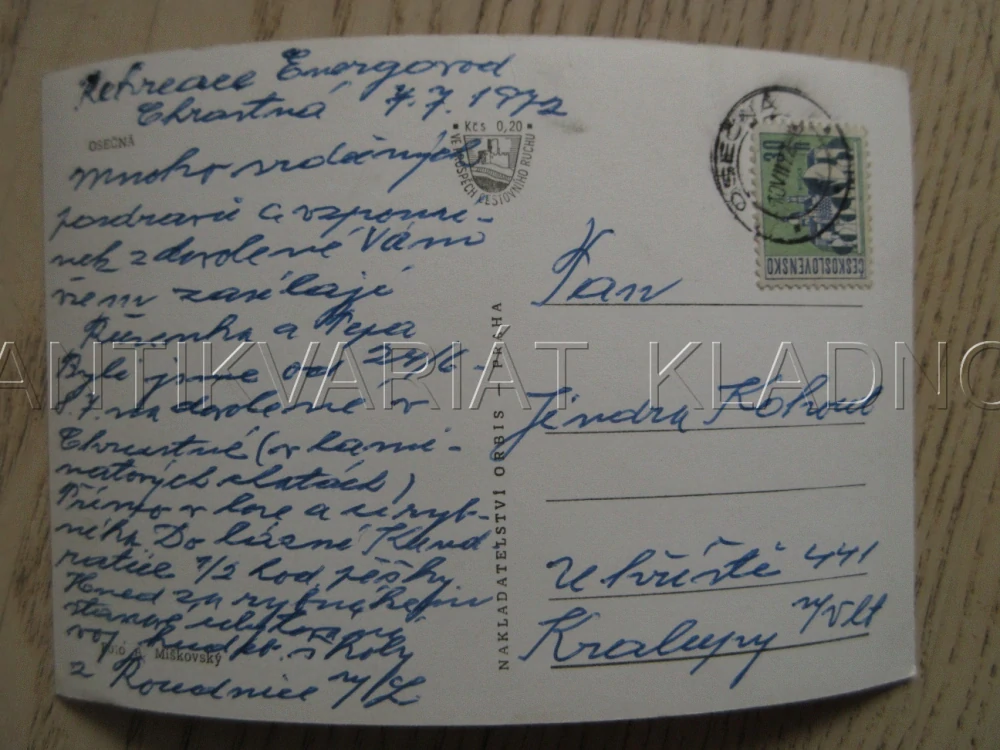 Rekreace Energovod
Chrastná 7.7.1972
OSEČNÁ
Mnoho srdečných
pozdravů a vzpomí-
nek z dovolené Vám
všem zasílají
Růženka a Pepa
Byli jsme od 24/6-
8.7. na dovolené v
Chrastné (v lami-
nátových chatách)
Přímo v lese a u ryb-
níka Do lázní Kund
ratice 1/2 hod. pěšky.
Hned za rybníkem
stanové
voj. školy
z Roudnice n/L
Foto Miškovský
Kčs 0,20
VE PROSPĚCH CESTOVNÍHO RUCHU
NAKLADATELSTVÍ ORBIS — PRAHA
OSEČNÁ
30
ČESKOSLOVENSKO
Pan
Jindra Kohout
U hřiště 441
Kralupy n/Vlt
ANTIKVARIÁT KLADNO